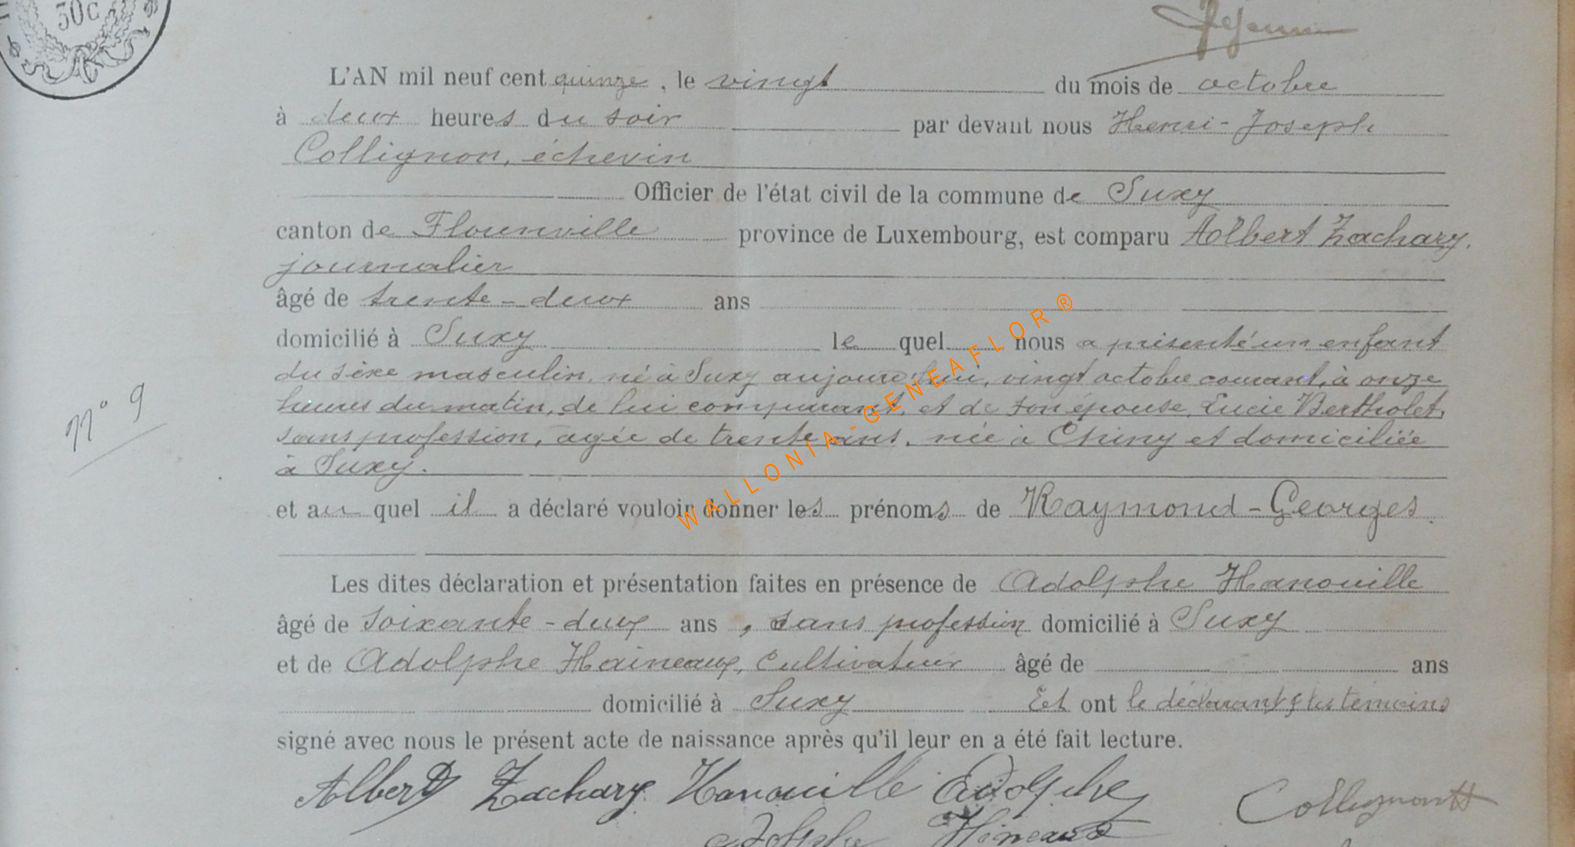 50c
L'AN mil neuf cent quinze, le vingt du mois de octobre
à deux heures du soir par devant nous Henri-Joseph
Collignon, échevin
Officier de l'état civil de la commune de Suxy
canton de Florenville province de Luxembourg, est comparu Albert Zachary,
journalier
âgé de trente-deux ans
domicilié à Suxy le quel nous a présenté un enfant
du sexe masculin, né à Suxy aujourd'hui, vingt octobre courant, à onze
heures du matin, de lui comparant, et de son épouse, Lucie Bertholet,
sans profession, agée de trente ans, née à Chiny et domiciliée
à Suxy.
N° 9
et au quel il a déclaré vouloir donner les prénoms de Raymond-Georges.
Les dites déclaration et présentation faites en présence de Adolphe Hanouille
âgé de soixante-deux ans, sans profession domicilié à Suxy
et de Adolphe Haineaux, cultivateur âgé de ans
domicilié à Suxy Et ont le déclarant & les témoins
signé avec nous le présent acte de naissance après qu'il leur en a été fait lecture.
Albert Zachary Hanouille Adolphe Collignon
Adolphe Hineaux
WALLONIA-GENEAFLOR®